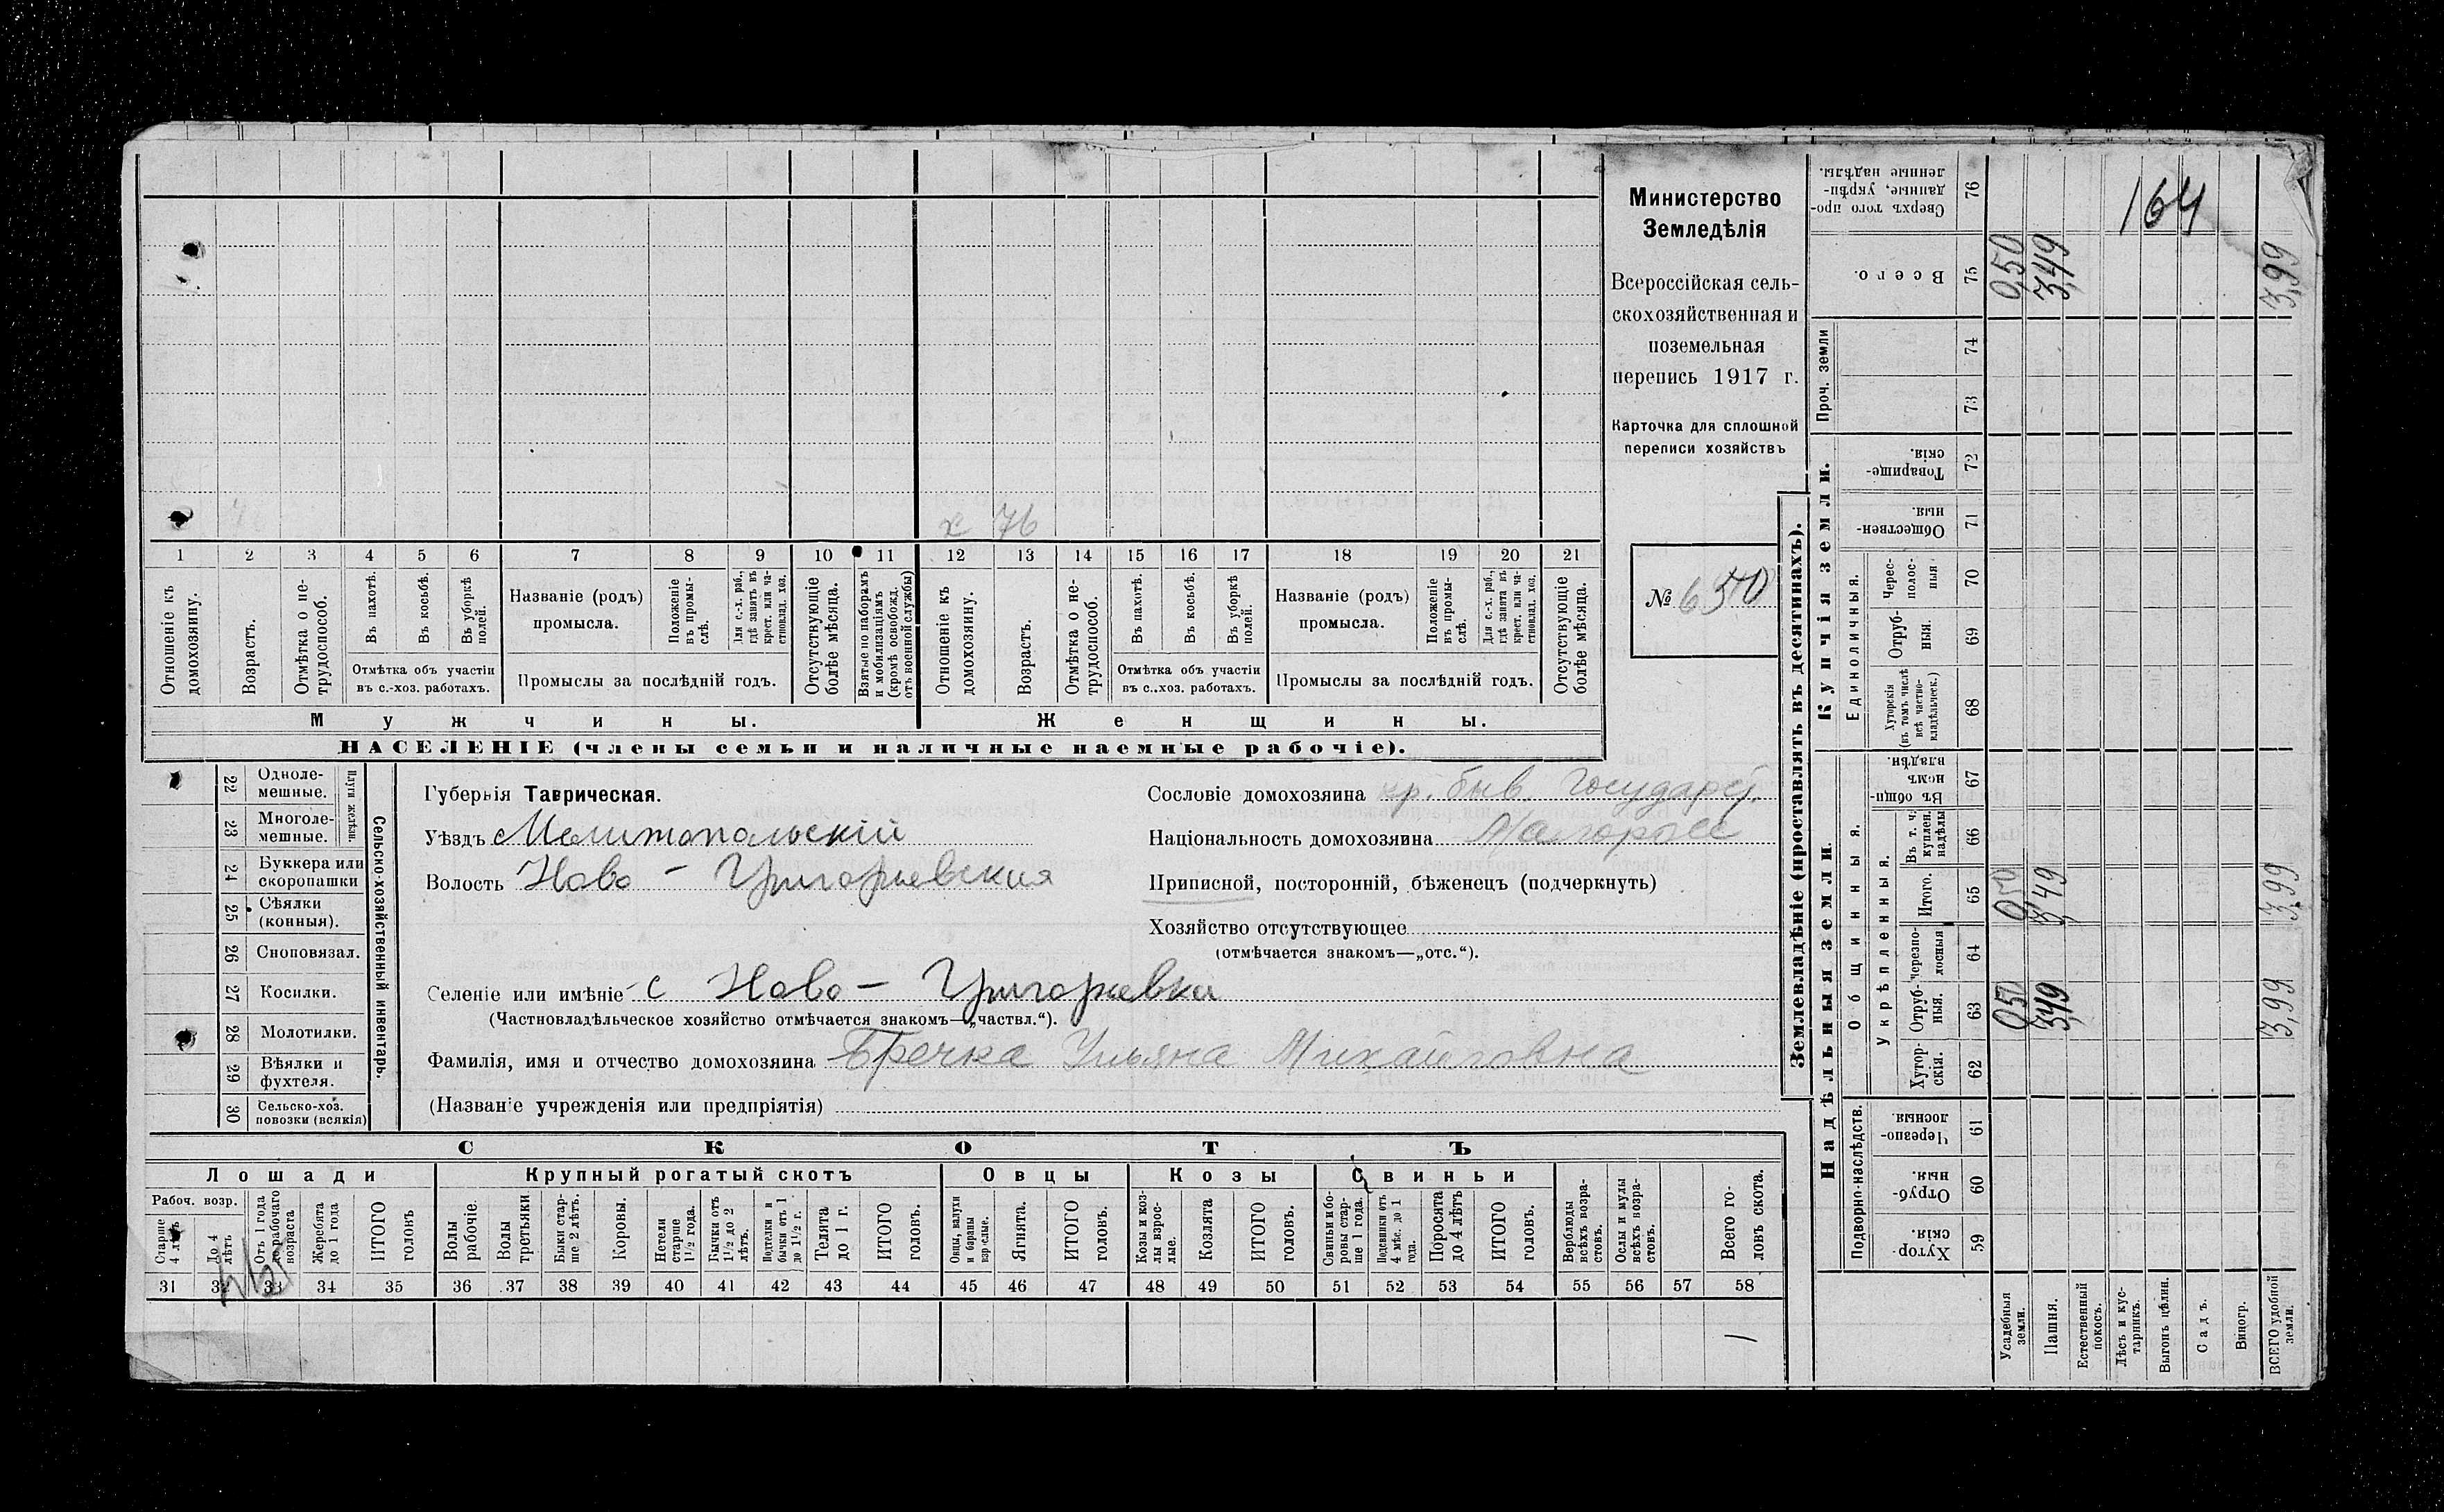 х 76
1 2 3 4 5 6 7 8 9 10 11 12 13 14 15 16 17 18 19 20 21
Отношеніе къ домохозяину.
Возрастъ.
Отмѣтка о не-
трудоспособ.
Въ пахотѣ.
Въ косьбѣ.
Въ уборкѣ полей.
Отмѣтка объ участіи
въ с.-хоз. работахъ.
Названіе (родъ)
промысла.
Положеніе
въ промы-
слѣ.
Для с.-х. раб.,
гдѣ занятъ въ
крест. или ча-
стновлад. хоз.
Промыслы за послѣдній годъ.
Отсутствующіе
болѣе мѣсяца.
Взятые по наборамъ
и мобилизаціямъ
(кромѣ освобожд.
отъ военной службы)
Отношеніе къ
домохозяину.
Возрастъ.
Отмѣтка о не-
трудоспособ.
Въ пахотѣ.
Въ косьбѣ.
Въ уборкѣ
полей.
Отмѣтка объ участіи
въ с..хоз. работахъ.
Названіе (родъ)
промысла.
Положеніе
въ промы-
слѣ.
Для с.-х. раб.,
гдѣ занята въ
крест. или ча-
стновлад. хоз.
Промыслы за послѣдній годъ.
Отсутствующіе
болѣе мѣсяца.
Мужчины.
Женщины.
НАСЕЛЕНІЕ (члены семьи и наличные наемные рабочіе).
Министерство
Земледѣлія
Всероссійская сель-
скохозяйственная и
поземельная
перепись 1917 г.
Карточка для сплошной
переписи хозяйствъ
№ 650
22 Одноле-
мешные.
23 Многоле-
мешные.
Плуги желѣзн.
24 Буккера или
скоропашки
25 Сѣялки
(конныя).
26 Сноповязал.
27 Косилки.
28 Молотилки.
29 Вѣялки и
фухтеля.
30 Сельско-хоз.
повозки (всякія)
Сельско-хозяйственный инвентарь.
Губернія Таврическая.
Уѣздъ Мелитопольскій
Волость Ново - Григорьевская
Селеніе или имѣніе с Ново - Григорьевка
(Частновладѣльческое хозяйство отмѣчается знакомъ—„частвл.“).
Фамилія, имя и отчество домохозяина Гречка Ульяна Михайловна
(Названіе учрежденія или предпріятія)
Сословіе домохозяина кр. быв. государст.
Національность домохозяина Малоросс
Приписной, посторонній, бѣженецъ (подчеркнуть)
Хозяйство отсутствующее
(отмѣчается знакомъ—„отс.“).
СКОТЪ
Лошади
Рабоч. возр.
Старше
4 лѣтъ
До 4
лѣтъ
Отъ 1 года
до рабочаго
возраста
Жеребята
до 1 года
ИТОГО
головъ
Крупный рогатый скотъ
Волы
рабочіе.
Волы
третьяки
Быки стар-
ше 2 лѣтъ.
Коровы.
Нетели
старше
1½ года.
Бычки отъ
1½ до 2
лѣтъ.
Подтелки и
бычки отъ 1
до 1½ г.
Телята
до 1 г.
ИТОГО
головъ.
Овцы
Овцы, валухи
и бараны
взрослые.
Ягнята.
ИТОГО
головъ.
Козы
Козы и коз-
лы взрос-
лые.
Козлята
ИТОГО
головъ.
Свиньи
Свиньи и бо-
ровы стар-
ше 1 года.
Подсвинки отъ
4 мѣс. до 1
года.
Поросята
до 4 лѣтъ
ИТОГО
головъ.
Верблюды
всѣхъ возра-
стовъ.
Ослы и мулы
всѣхъ возра-
стовъ.
Всего го-
ловъ скота.
31 32 33 34 35 36 37 38 39 40 41 42 43 44 45 46 47 48 49 50 51 52 53 54 55 56 57 58
—
Землевладѣніе (проставлять въ десятинахъ).
Сверхъ того про-
данные, укрѣп-
ленные надѣлы.
76
164
Всего.
75
0,50
3,49
3,99
Купчія земли.
Проч. земли
74
73
Товарище-
скія.
72
Обществен-
ныя.
71
Единоличныя.
Черес-
полос-
ныя
70
Отруб-
ныя.
69
Хуторскія
(въ томъ числѣ
всѣ частно-
владѣльческ.)
68
Надѣльныя земли.
Общинныя.
Въ общин-
номъ
владѣн.
67
Укрѣпленныя.
Въ т. ч.
куплен.
надѣлы
66
Итого.
65
0,50
3,49
3,99
Черезпо-
лосныя
64
Отруб-
ныя.
63
0,50
3,49
3,99
Хутор-
скія.
62
Подворно-наслѣдств.
Черезпо-
лосныя
61
Отруб-
ныя.
60
Хутор-
скія.
59
Усадебныя
земли.
Пашня.
Естественный
покосъ.
Лѣсъ и кус-
тарникъ.
Выгонъ цѣлин.
Садъ.
Виногр.
ВСЕГО удобной
земли.